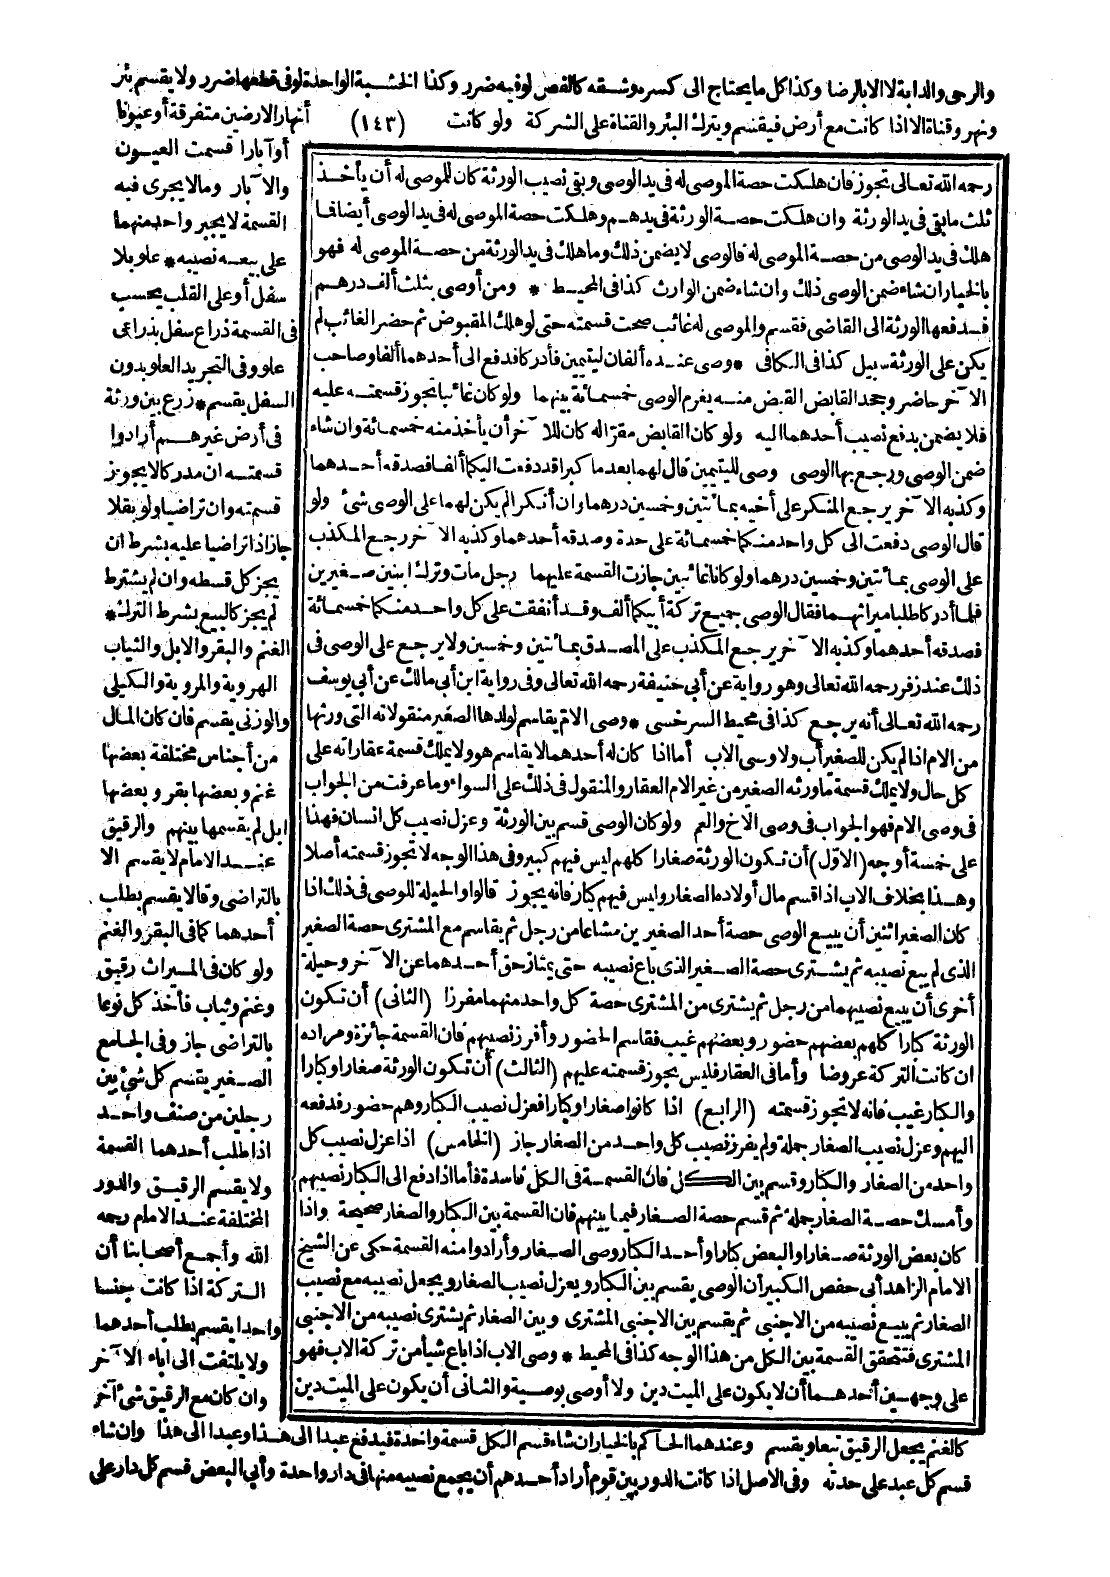 والرحى والدابة لا الا بالرضا وكذا كل ما يحتاج الى كسره وشقه كالفص لو فيه ضرر وكذا الخشبة الواحدة لو فى قطعها ضرر ولا يقسم بئر
ونهر وقناة الا اذا كانت مع أرض فيقسم ويترك البئر والقناة على الشركة ولو كانت (١٤٣) أنهار الارضين متفرقة أو عيونا
أو آبارا قسمت العيون
والا آبار وما لا يجرى فيه
القسمة لا يجبر واحد منهما
على بيعه نصيبه * علو بلا
سفل أو على القلب يحسب
فى القسمة ذراع سفل بذراعى
علو وفى التجريد العلو بدون
السفل يقسم * زرع بين ورثة
فى أرض غيرهم أرادوا
قسمته ان مدركا لا يجوز
قسمته وان تراضيا ولو بقلا
جاز اذا تراضيا عليه بشرط ان
يجز كل قسطه وان لم يشترط
لم يجز كالبيع بشرط الترك *
الغنم والبقر والابل والثياب
الهروية والمروية والكيلى
والوزنى يقسم فان كان المال
من أجناس مختلفة بعضها
غنم وبعضها بقر وبعضها
ابل لم يقسمها بينهم والرقيق
عند الامام لا يقسم الا
بالتراضى وقالا يقسم بطلب
أحدهما كما فى البقر والغنم
ولو كان فى الميراث رقيق
وغنم وثياب فأخذ كل نوعا
بالتراضى جاز وفى الجامع
الصغير يقسم كل شئ بين
رجلين من صنف واحد
اذا طلب أحدهما القسمة
ولا يقسم الرقيق والدور
المختلفة عند الامام رحمه
الله وأجمع أصحابنا أن
التركة اذا كانت جنسا
واحدا يقسم بطلب أحدهما
ولا يلتفت الى اباء الا آخر
وان كان مع الرقيق شئ آخر
رحمه الله تعالى تجوز فان هلكت حصة الموصى له فى يد الوصى وبقى نصيب الورثة كان للموصى له أن يأخذ
ثلث ما بقى فى يد الورثة وان هلكت حصة الورثة فى يدهم وهلكت حصة الموصى له فى يد الوصى أيضا فما
هلك فى يد الوصى من حصة الموصى له فالوصى لا يضمن ذلك وما هلك فى يد الورثة من حصة الموصى له فهو
بالخيار ان شاء ضمن الوصى ذلك وان شاء ضمن الوارث كذا فى المحيط * ومن أوصى بثلث ألف درهم
فدفعها الورثة الى القاضى فقسم والموصى له غائب صحت قسمته حتى لو هلك المقبوض ثم حضر الغائب لم
يكن على الورثة سبيل كذا فى الكافى * وصى عنده ألفان ليتيمين فأدركا فدفع الى أحدهما ألفا وصاحب
الا آخر حاضر وجحد القابض القبض منه يغرم الوصى خمسمائة بينهما ولو كان غائبا تجوز قسمته عليه
فلا يضمن بدفع نصيب أحدهما اليه ولو كان القابض مقرا له كان للا آخر أن يأخذ منه خمسمائة وان شاء
ضمن الوصى ورجع بها الوصى وصى لليتيمين قال لهما بعد ما كبرا قد دفعت اليكما ألفا فصدقه أحدهما
وكذبه الا آخر يرجع المنكر على أخيه بمائتين وخمسين درهما وان أنكرا لم يكن لهما على الوصى شئ ولو
قال الوصى دفعت الى كل واحد منكما خمسمائة على حدة وصدقه أحدهما وكذبه الا آخر رجع المكذب
على الوصى بمائتين وخمسين درهما ولو كانا غائبين جازت القسمة عليهما رجل مات وترك ابنين صغيرين
فلما أدركا طلبا ميراثهما فقال الوصى جميع تركة أبيكما ألف وقد أنفقت على كل واحد منكما خمسمائة
فصدقه أحدهما وكذبه الا آخر يرجع المكذب على المصدق بمائتين وخمسين ولا يرجع على الوصى فى
ذلك عند زفر رحمه الله تعالى وهو رواية عن أبى حنيفة رحمه الله تعالى وفى رواية ابن أبى مالك عن أبى يوسف
رحمه الله تعالى أنه يرجع كذا فى محيط السرخسى * وصى الام يقاسم لولدها الصغير منقولاته التى ورثها
من الام اذا لم يكن للصغير أب ولا وصى الاب أما اذا كان له أحدهما لا يقاسم هو ولا يملك قسمة عقاراته على
كل حال ولا يملك قسمة ما ورثه الصغير من غير الام العقار والمنقول فى ذلك على السواء وما عرفت من الجواب
فى وصى الام فهو الجواب فى وصى الاخ والعم ولو كان الوصى قسم بين الورثة وعزل نصيب كل انسان فهذا
على خمسة أوجه (الاول) أن تكون الورثة صغارا كلهم ليس فيهم كبير وفى هذا الوجه لا تجوز قسمته أصلا
وهذا بخلاف الاب اذا قسم مال أولاده الصغار وليس فيهم كبار فانه يجوز قالوا والحيلة للوصى فى ذلك اذا
كان الصغير اثنين أن يبيع الوصى حصة أحد الصغيرين مشاعا من رجل ثم يقاسم مع المشترى حصة الصغير
الذى لم يبع نصيبه ثم يشترى حصة الصغير الذى باع نصيبه حتى يمتاز حق أحدهما عن الا آخر وحيلة
أخرى أن يبيع نصيبهما من رجل ثم يشترى من المشترى حصة كل واحد منهما مفرزا (الثانى) أن تكون
الورثة كبارا كلهم بعضهم حضور وبعضهم غيب فقاسم الحضور وأفرز نصيبهم فان القسمة جائزة ومراده
ان كانت التركة عروضا وأما فى العقار فليس يجوز قسمته عليهم (الثالث) أن تكون الورثة صغارا وكبارا
والكبار غيب فانه لا تجوز قسمته (الرابع) اذا كانوا صغارا وكبارا فعزل نصيب الكبار وهم حضور فدفعه
اليهم وعزل نصيب الصغار جملة ولم يفرز نصيب كل واحد من الصغار جاز (الخامس) اذا عزل نصيب كل
واحد من الصغار والكبار وقسم بين الكل فان القسمة فى الكل فاسدة فأما اذا دفع الى الكبار نصيبهم
وأمسك حصة الصغار جملة ثم قسم حصة الصغار فيما بينهم فان القسمة بين الكبار والصغار صحيحة واذا
كان بعض الورثة صغارا والبعض كبارا وأحد الكبار وصى الصغار وأرادوا منه القسمة حكى عن الشيخ
الامام الزاهد أبى حفص الكبير أن الوصى يقسم بين الكبار ويعزل نصيب الصغار ويجعل نصيبه مع نصيب
الصغار ثم يبيع نصيبه من الاجنبى ثم يقسم بين الاجنبى المشترى وبين الصغار ثم يشترى نصيبه من الاجنبى
المشترى فتتحقق القسمة بين الكل من هذا الوجه كذا فى المحيط * وصى الاب اذا باع شيأ من تركة الاب فهو
على وجهين أحدهما أن لا يكون على الميت دين ولا أوصى بوصية والثانى أن يكون على الميت دين
كالغنم يجعل الرقيق تبعا ويقسم وعندهما الحاكم بالخيار ان شاء قسم الكل قسمة واحدة فيدفع عبدا الى هذا وعبدا الى هذا وان شاء
قسم كل عبد على حدته وفى الاصل اذا كانت الدور بين قوم أراد أحدهم أن يجمع نصيبه منها فى دار واحدة وأبى البعض قسم كل دار على